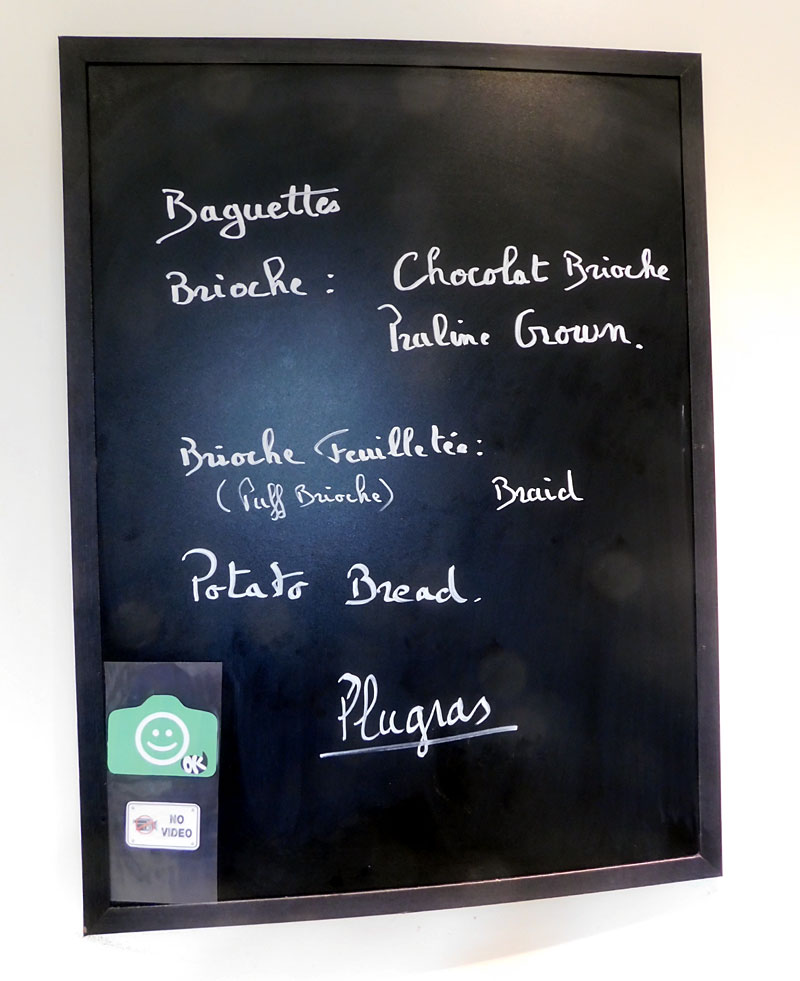 Baguettes
Brioche : Chocolat Brioche
Praline Crown.
Brioche Feuilletée :
(Puff Brioche) Braid
Potato Bread.
Plugras
OK
NO
VIDEO